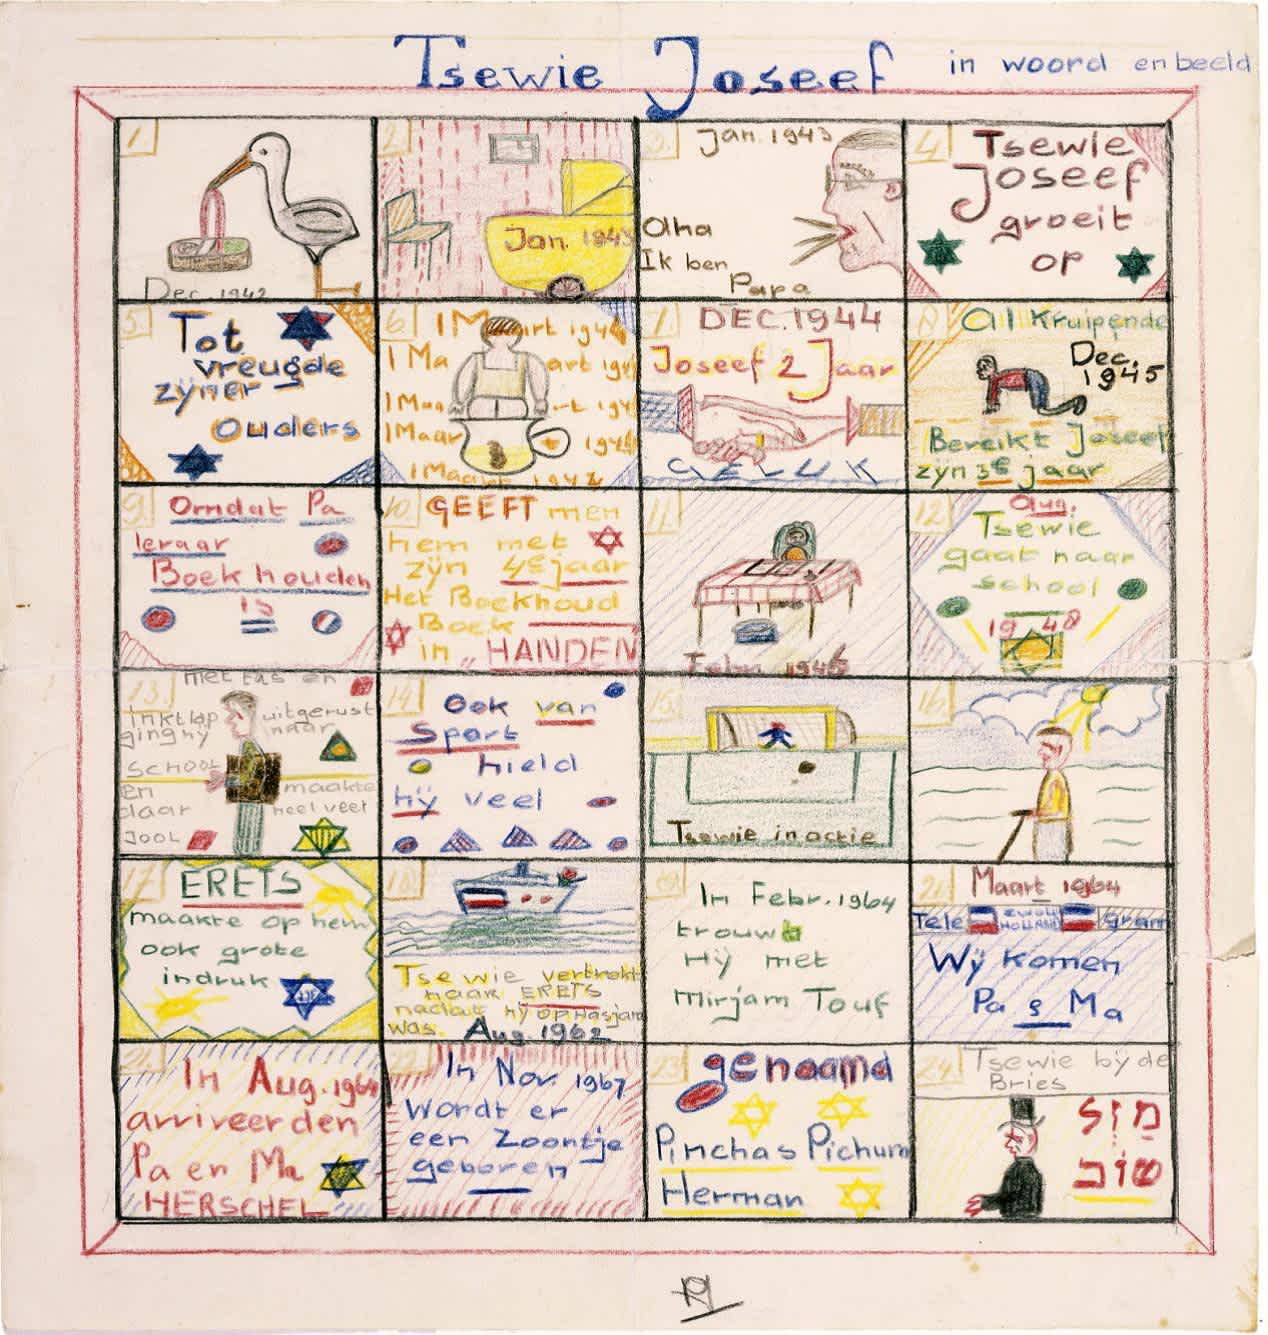 Tsewie Joseef in woord en beeld
1.
Dec. 1942
2.
Jan. 1943
3.
Jan. 1943
Aha
Ik ben
Papa
4
Tsewie
Joseef
groeit
op
5.
Tot
vreugde
zijner
Ouders
6.
1 Maart 1944
1 Maart 194
1 Maart 194
1 Maart 1944
1 Maart 194
7.
DEC. 1944
Joseef 2 Jaar
GELUK
8
Al Kruipende
Dec.
1945
Bereikt Joseef
zijn 3e jaar
9.
Omdat Pa
leraar
Boekhouden
is
10.
GEEFT men
hem met
zijn 4e jaar
Het Boekhoud
Boek
in "HANDEN
11.
Febr. 1946
12.
Aug.
Tsewie
gaat naar
school
1948
13.
met tas en
inktlap uitgerust
ging hij naar
SCHOOL
en maakte
daar heel veel
JOOL
14.
Ook van
Sport
hield
hij veel
15.
Tsewie in actie
16.
17.
ERETS
maakte op hem
ook grote
indruk
18.
Tsewie vertrekt
naar ERETS
nadat hij op Hasjara
was. Aug. 1962
19.
In Febr. 1964
trouwt
Hij met
Mirjam Touf
Maart 1964
Tele ZWOLLE HOLLAND gram
Wij komen
Pa & Ma
In Aug. 1964
arriveerden
Pa en Ma
HERSCHEL
22.
In Nov. 1967
Wordt er
een Zoontje
geboren
23.
genaamd
Pinchas Pichum
Herman
24.
Tsewie bij de
Bries
מזל
טוב